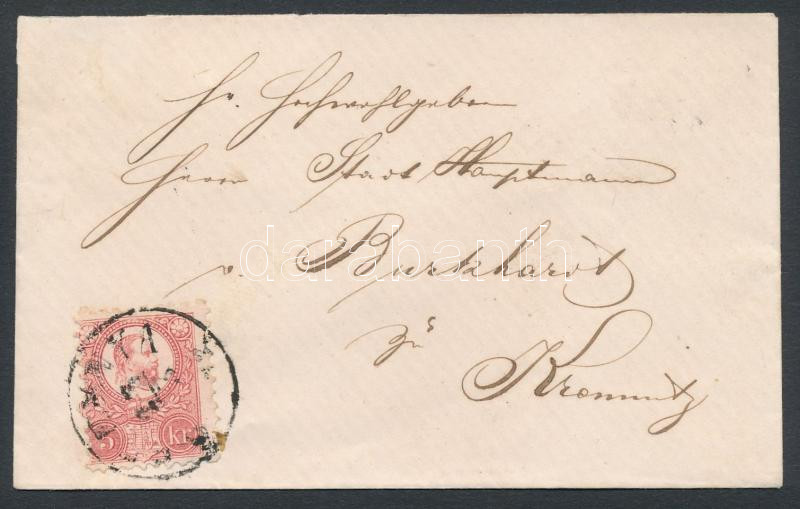 Sr. Hochwohlgeboren
Herrn Stadt Hauptmann
v. Burkhardt
zu
Kremnitz
darabanth.com
5 kr